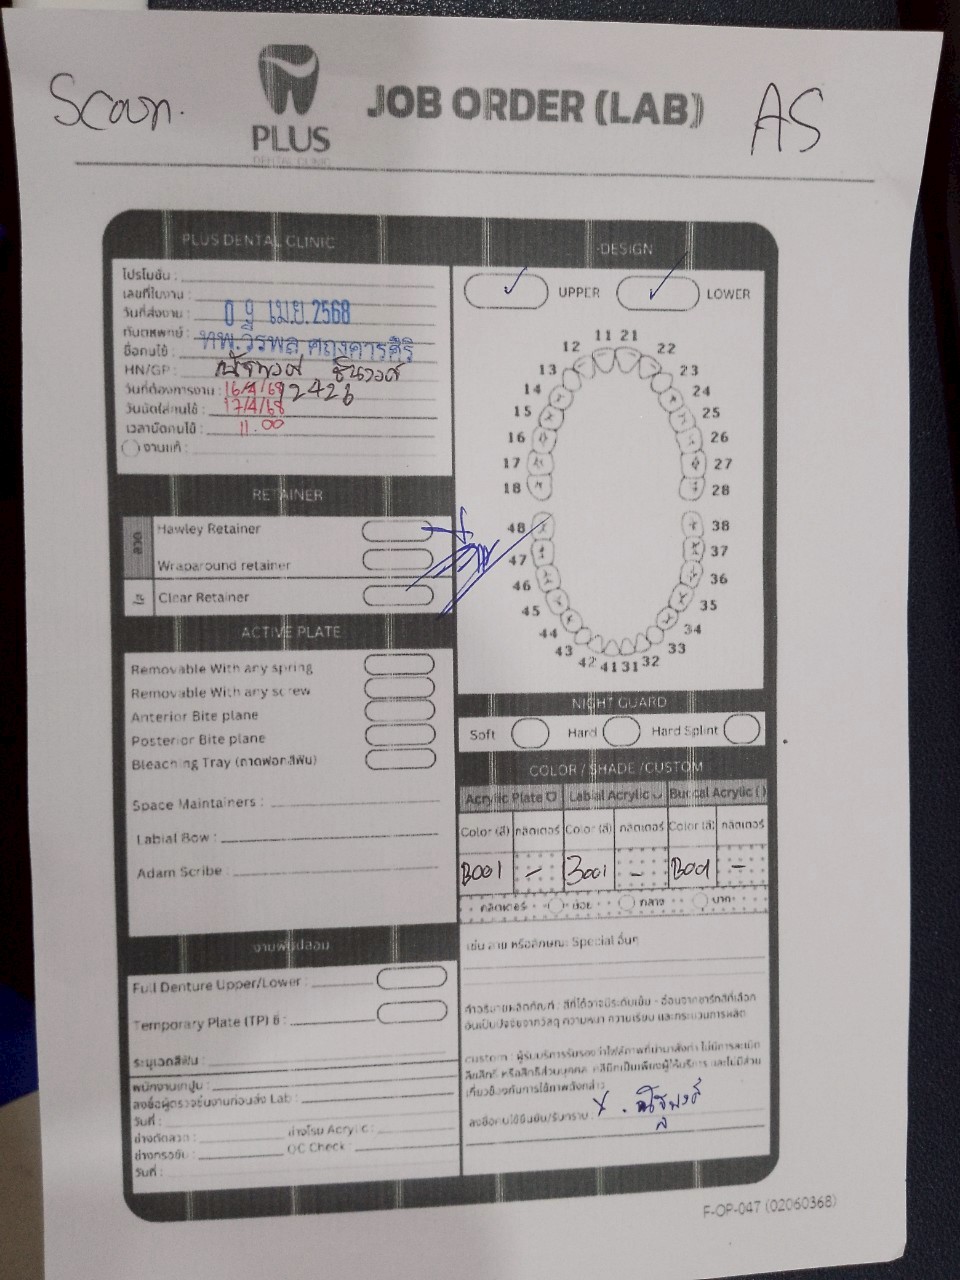 Scan.
PLUS
DENTAL CLINIC
JOB ORDER (LAB)
AS
PLUS DENTAL CLINIC
โปรโมชั่น :
เลขที่ใบงาน :
วันที่ส่งงาน : 0 9 เม.ย. 2568
ทันตแพทย์ : ทพ.วีรพล
ชื่อคนไข้ :
HN/GP : 12426
วันที่ต้องการงาน : 16/4/68
วันนัดใส่คนไข้ : 17/4/68
เวลานัดคนไข้ : 11.00
งานแก้ :
RETAINER
ลวด
Hawley Retainer
Wraparound retainer
ใส
Clear Retainer
ACTIVE PLATE
Removable With any spring
Removable With any screw
Anterior Bite plane
Posterior Bite plane
Bleaching Tray (ถาดฟอกสีฟัน)
Space Maintainers :
Labial Bow :
Adam Scribe :
งานฟันปลอม
Full Denture Upper/Lower :
Temporary Plate (TP) ซี่ :
ระบุเฉดสีฟัน :
พนักงานเทปูน :
ลงชื่อผู้ตรวจชิ้นงานก่อนส่ง Lab :
วันที่ :
ช่างดัดลวด : ช่างโรย Acrylic :
ช่างกรอขัด : QC Check :
วันที่ :
DESIGN
UPPER
LOWER
11 21
12 22
13 23
14 24
15 25
16 26
17 27
18 28
48 38
47 37
46 36
45 35
44 34
43 33
42 41 31 32
NIGHT GUARD
Soft Hard Hard Splint
COLOR / SHADE / CUSTOM
Acrylic Plate Labial Acrylic Buccal Acrylic ( )
Color (สี) กลิตเตอร์ Color (สี) กลิตเตอร์ Color (สี) กลิตเตอร์
B001 - B001 - B001 -
กลิตเตอร์ น้อย กลาง มาก
เช่น ลาย หรือลักษณะ Special อื่นๆ
คำอธิบายผลิตภัณฑ์ : สีที่ได้อาจมีระดับเข้ม - อ่อนจากชาร์ทสีที่เลือก
อันเป็นปัจจัยจากวัสดุ ความหนา ความเรียบ และกระบวนการผลิต
custom : ผู้รับบริการรับรองว่าไฟล์ภาพที่นำมาสั่งทำ ไม่มีการละเมิด
ลิขสิทธิ์ หรือสิทธิส่วนบุคคล คลินิกเป็นเพียงผู้ให้บริการ และไม่มีส่วน
เกี่ยวข้องกับการใช้ภาพดังกล่าว
ลงชื่อคนไข้ยืนยัน/รับทราบ : X
F-OP-047 (02060368)